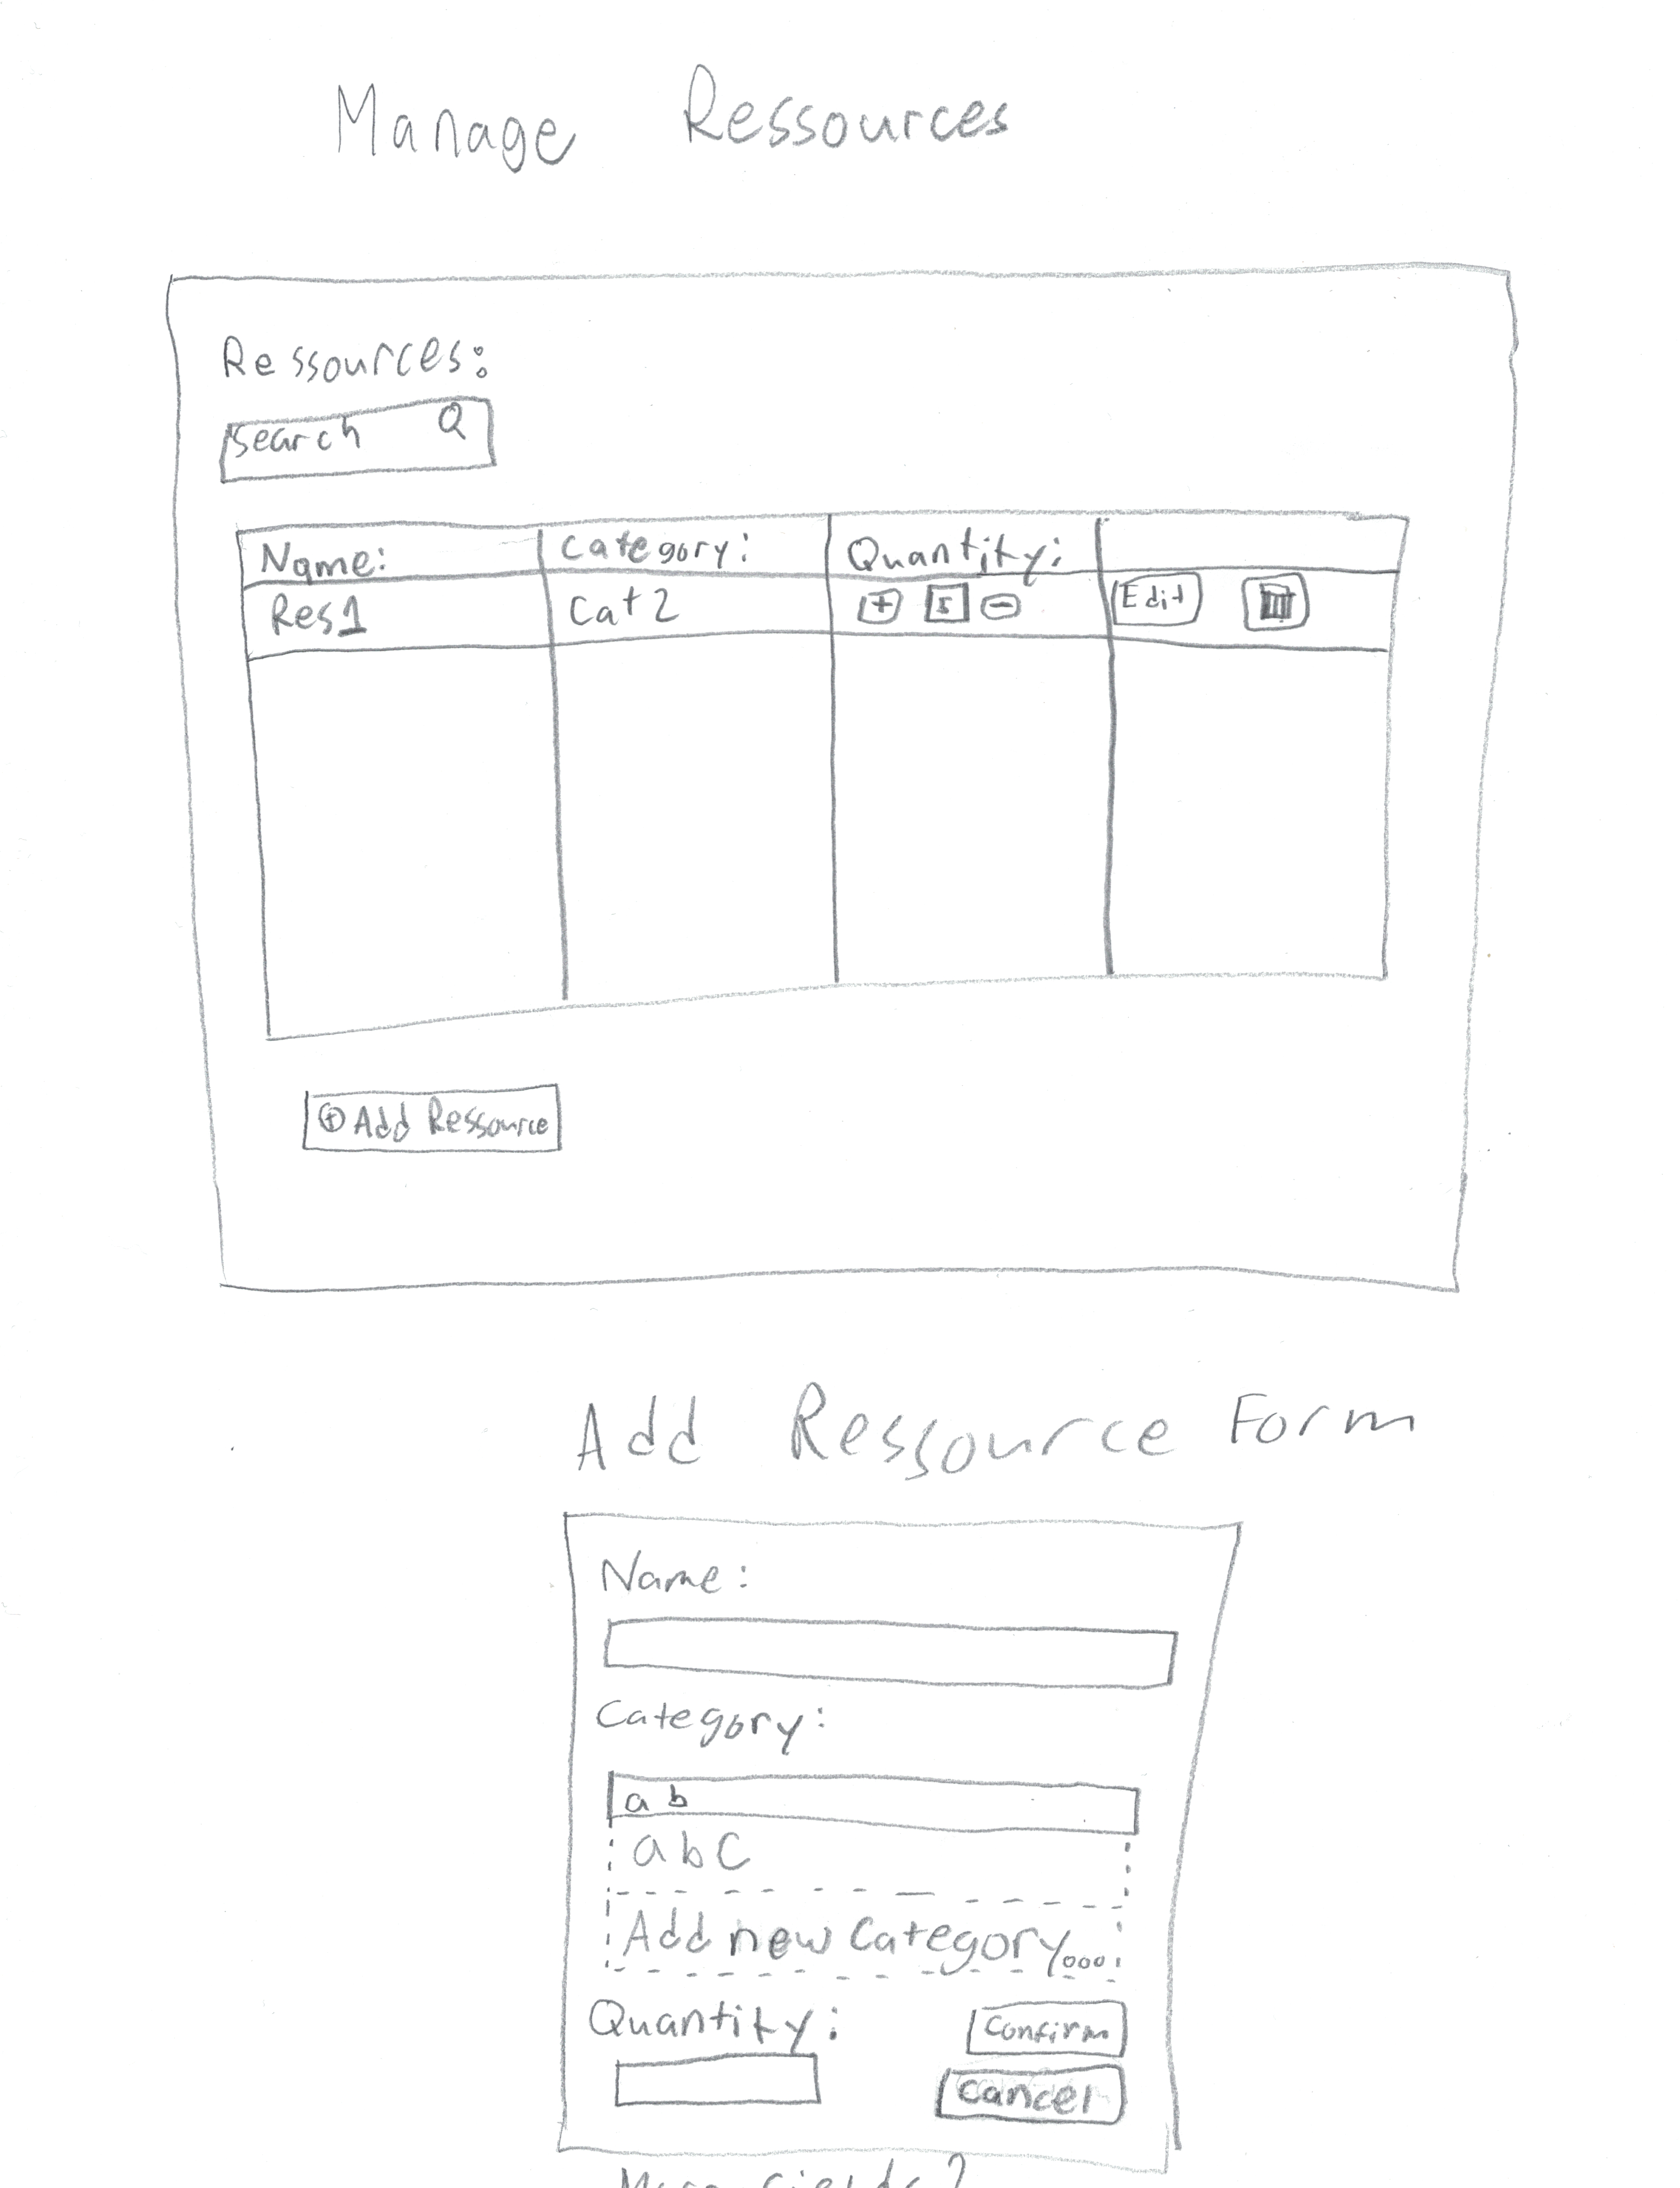 Manage Ressources
Ressources:
Search
Name: Category: Quantity:
Res1 Cat2 + 5 - Edit
+ Add Ressource
Add Ressource Form
Name:
Category:
ab
abC
Add new Category...
Quantity:
Confirm
Cancel
More fields?